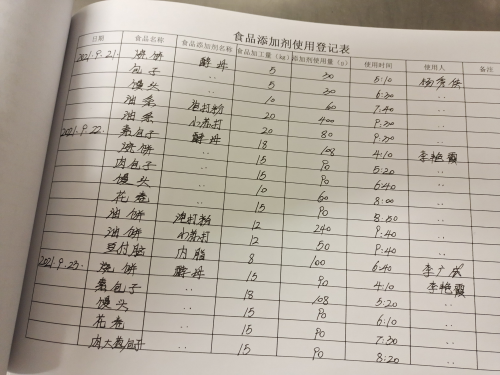 食品添加剂使用登记表
日期 食品名称 食品添加剂名称 食品加工量(kg) 添加剂使用量(g) 使用时间 使用人 备注
2021.9.21. 烧饼 酵母 5 30 5:10
包子 .. 5 30 6:30 ..
馒头 .. 10 60 7:40 ..
油条 泡打粉 20 400 9:30 ..
油条 小苏打 20 80 9:30 ..
2021.9.22. 素包子 酵母 18 108 4:10 李艳霞
烧饼 .. 15 90 5:20 ..
肉包子 .. 15 90 6:40 ..
馒头 .. 10 60 8:00 ..
花卷 .. 15 90 8:50 ..
油饼 泡打粉 12 240 9:40 ..
油饼 小苏打 12 50 9:40 ..
豆付脑 内脂 8 100 6:40
2021.9.23. 烧饼 酵母 15 90 4:10 李艳霞
素包子 .. 18 108 5:20 ..
馒头 .. 15 90 6:10 ..
花卷 .. 15 90 7:30 ..
肉大葱包子 .. 15 90 8:20 ..